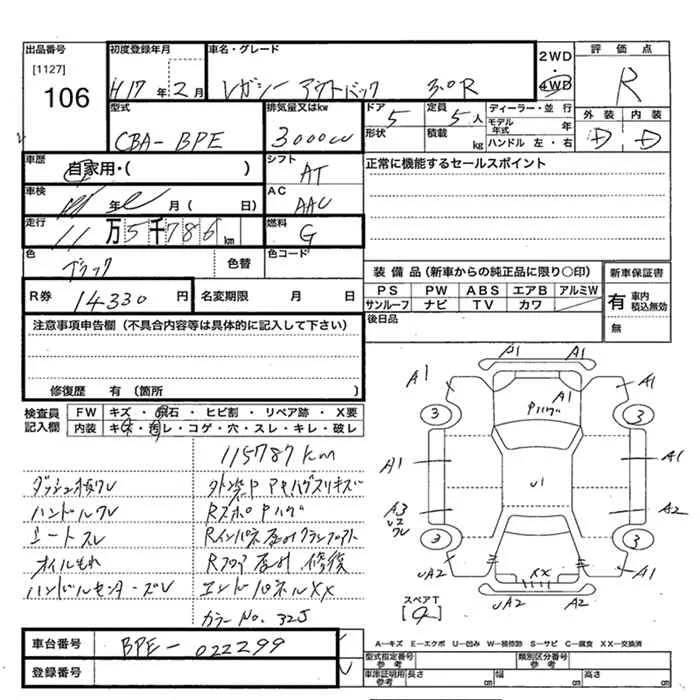 出品番号
[1127]
106
初度登録年月
H17 年 2 月
車名・グレード
レガシー アウトバック 3.0R
2WD
・
4WD
評価点
R
型式
CBA-BPE
排気量又はkw
3000cc
ドア
5
定員
5 人
ディーラー・並行
モデル年式 年
ハンドル 左・右
形状
積載 kg
外装 内装
D D
車歴
自家用・( )
シフト
AT
正常に機能するセールスポイント
車検
年 月 ( 日)
AC
AAC
走行
11 万 5 千 786 km
燃料
G
色
ブラック
色替
色コード
R券 14330 円
名変期限 月 日
装備品(新車からの純正品に限り〇印)
PS PW ABS エアB アルミW
サンルーフ ナビ TV カワ
後日品
新車保証書
有 車内積込無効
無
注意事項申告欄(不具合内容等は具体的に記入して下さい)
修復歴 有(箇所 )
検査員記入欄
FW キズ・飛石・ヒビ割・リペア跡・X要
内装 キズ・汚レ・コゲ・穴・スレ・キレ・破レ
115787km
ダッシュ板ワレ
ハンドルワレ
シートスレ
オイルもれ
外装P アモハゲスリキズ
RスポPハゲ
Rフロア 修復
エンドパネルXX
カラーNo. 32J
A1
A1
A1
A1
Pハゲ
3
3
A1
A1
U1
A3
A2
3
3
UA2
A1
XX
UA2
A2
スペアT
車台番号 BPE-022299
登録番号
A−キズ E−エクボ U−凹ミ W−補修跡 S−サビ C−腐食 XX−交換済
型式指定番号 参考
類別区分番号 参考
車庫証明用 参考
長さ cm
幅 cm
高さ cm